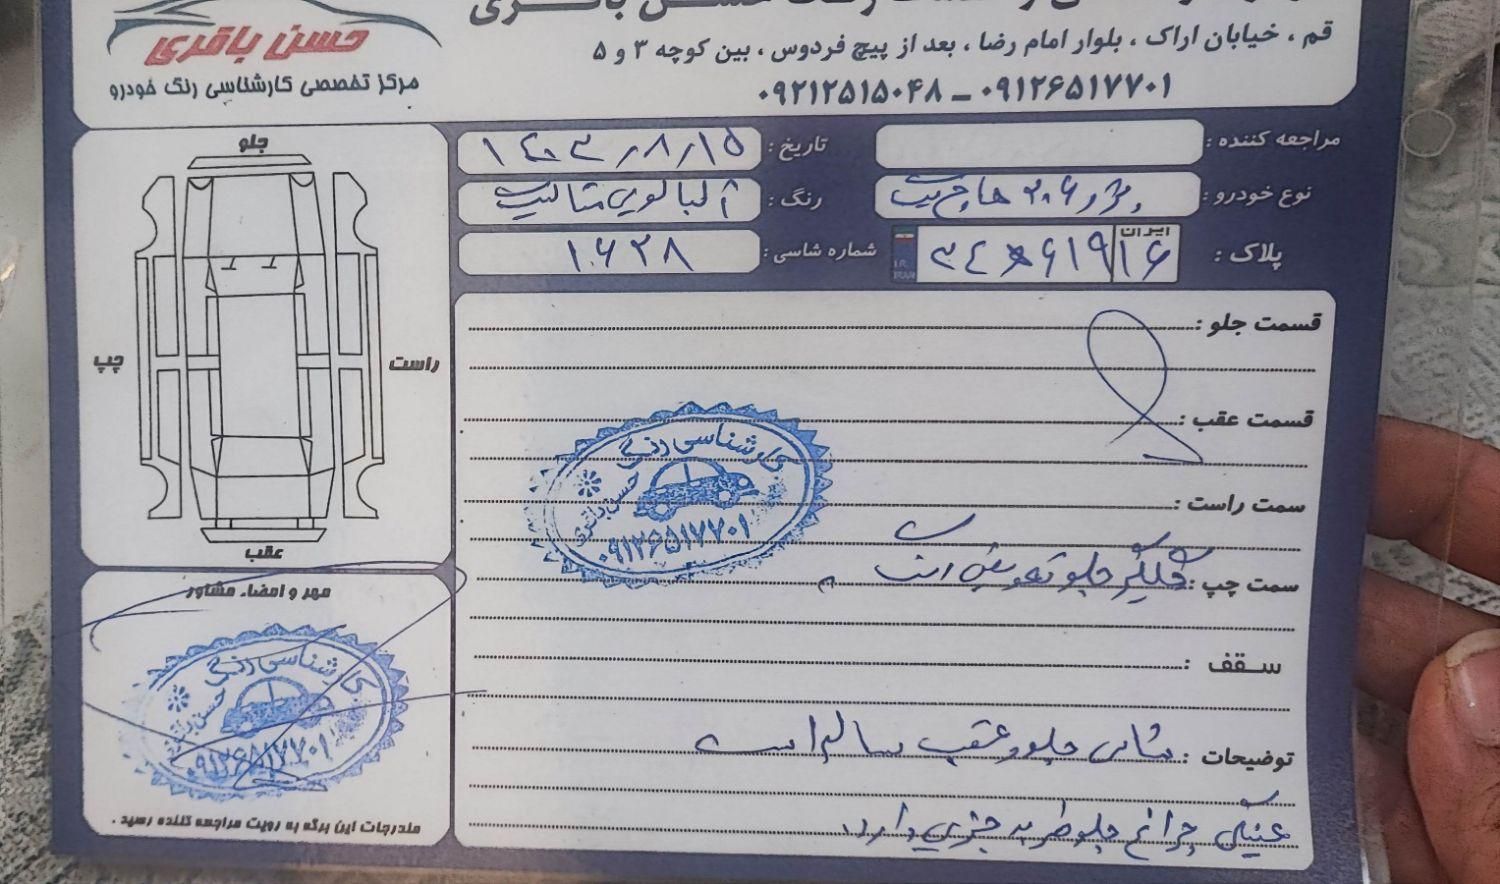 حسن باقری
مرکز تخصصی کارشناسی رنگ خودرو
قم ، خیابان اراک ، بلوار امام رضا ، بعد از پیچ فردوس ، بین کوچه ۳ و ۵
۰۹۱۲۶۵۱۷۷۰۱ ـ ۰۹۲۱۲۵۱۵۰۴۸
مراجعه کننده :
تاریخ : ۱۴۰۳/۸/۱۵
نوع خودرو : پژو ۲۰۶ هاچ بک
رنگ : آلبالویی متالیک
پلاک : ایران ۱۶
I.R. IRAN
شماره شاسی : ۱۰۶۲۸
جلو
چپ
راست
عقب
قسمت جلو :
قسمت عقب :
سمت راست :
سمت چپ : گلگیر جلو تعویض است
سقف :
توضیحات : شاسی جلو و عقب سالم است
چراغ جلو دارد
کارشناسی رنگ
حسن باقری
۰۹۱۲۶۵۱۷۷۰۱
مهر و امضاء مشاور
کارشناسی رنگ
حسن باقری
۰۹۱۲۶۵۱۷۷۰۱
مندرجات این برگه به رویت مراجعه کننده رسید .